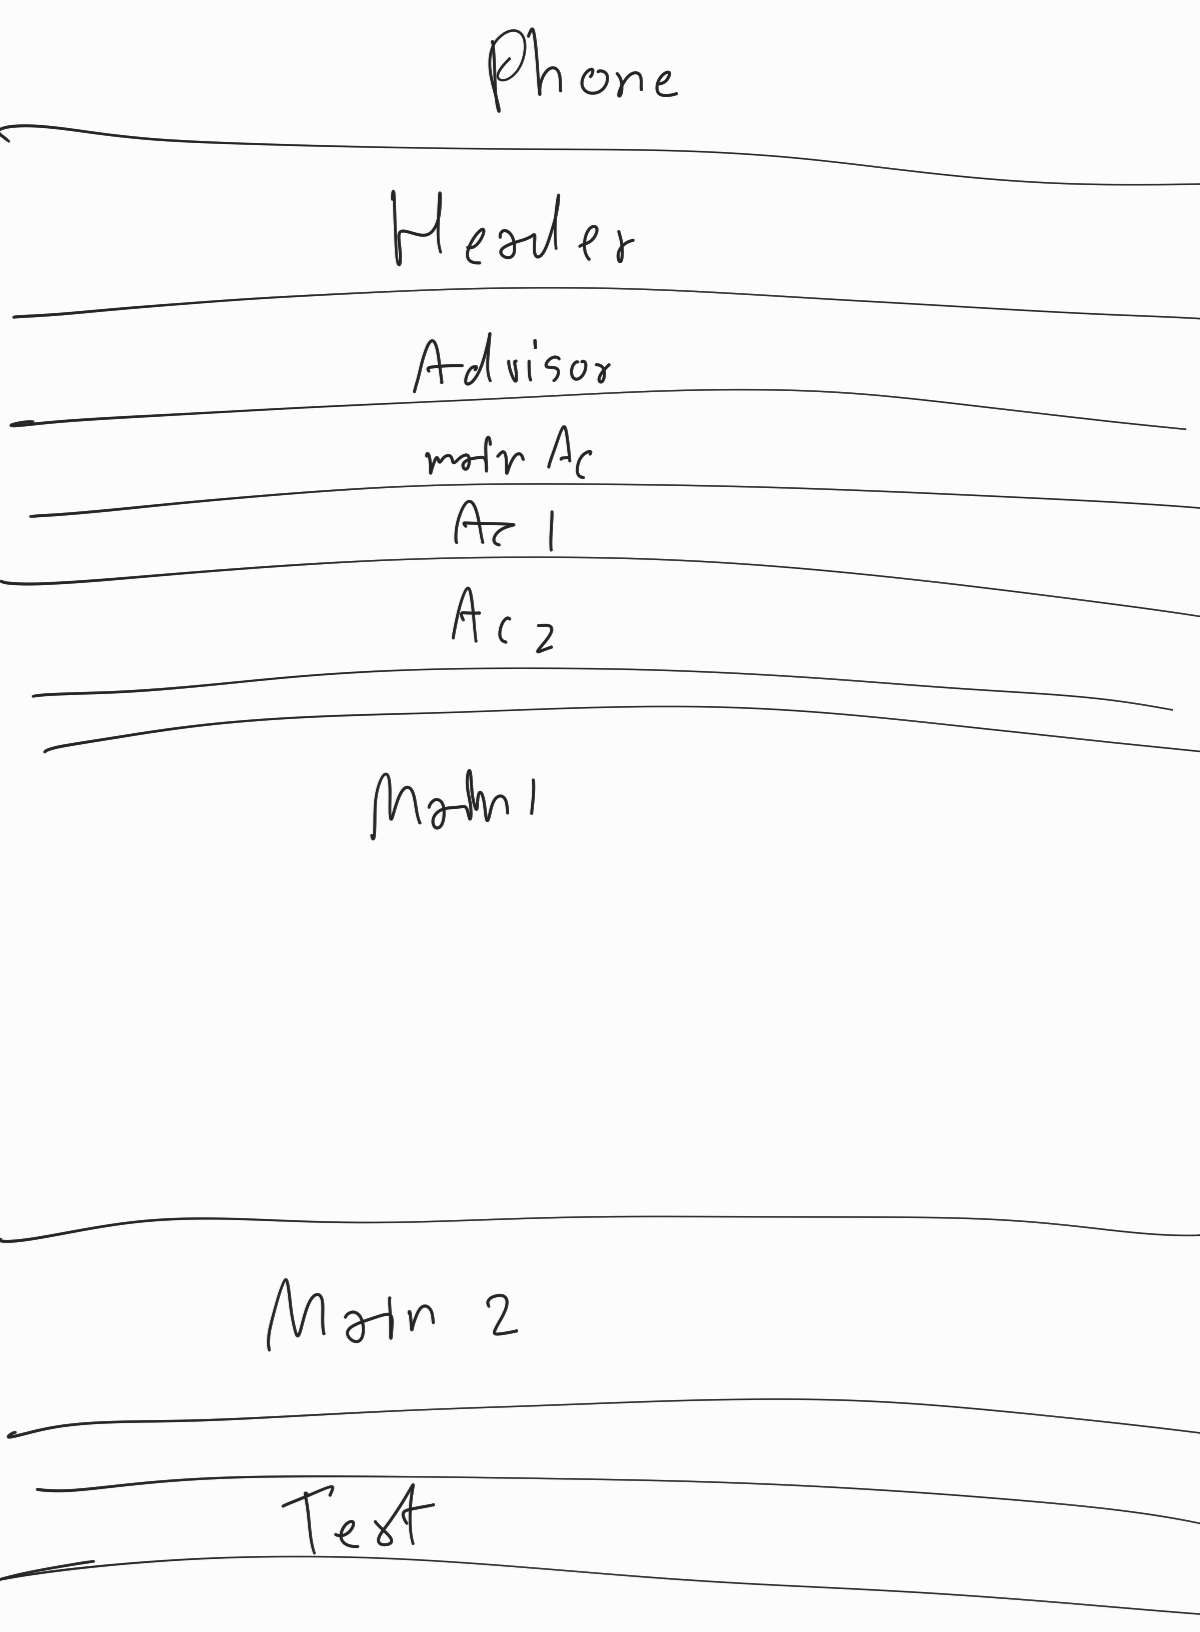 Phone
Header
Advisor
main Ac
Ac 1
Ac 2
Main 1
Main 2
Text